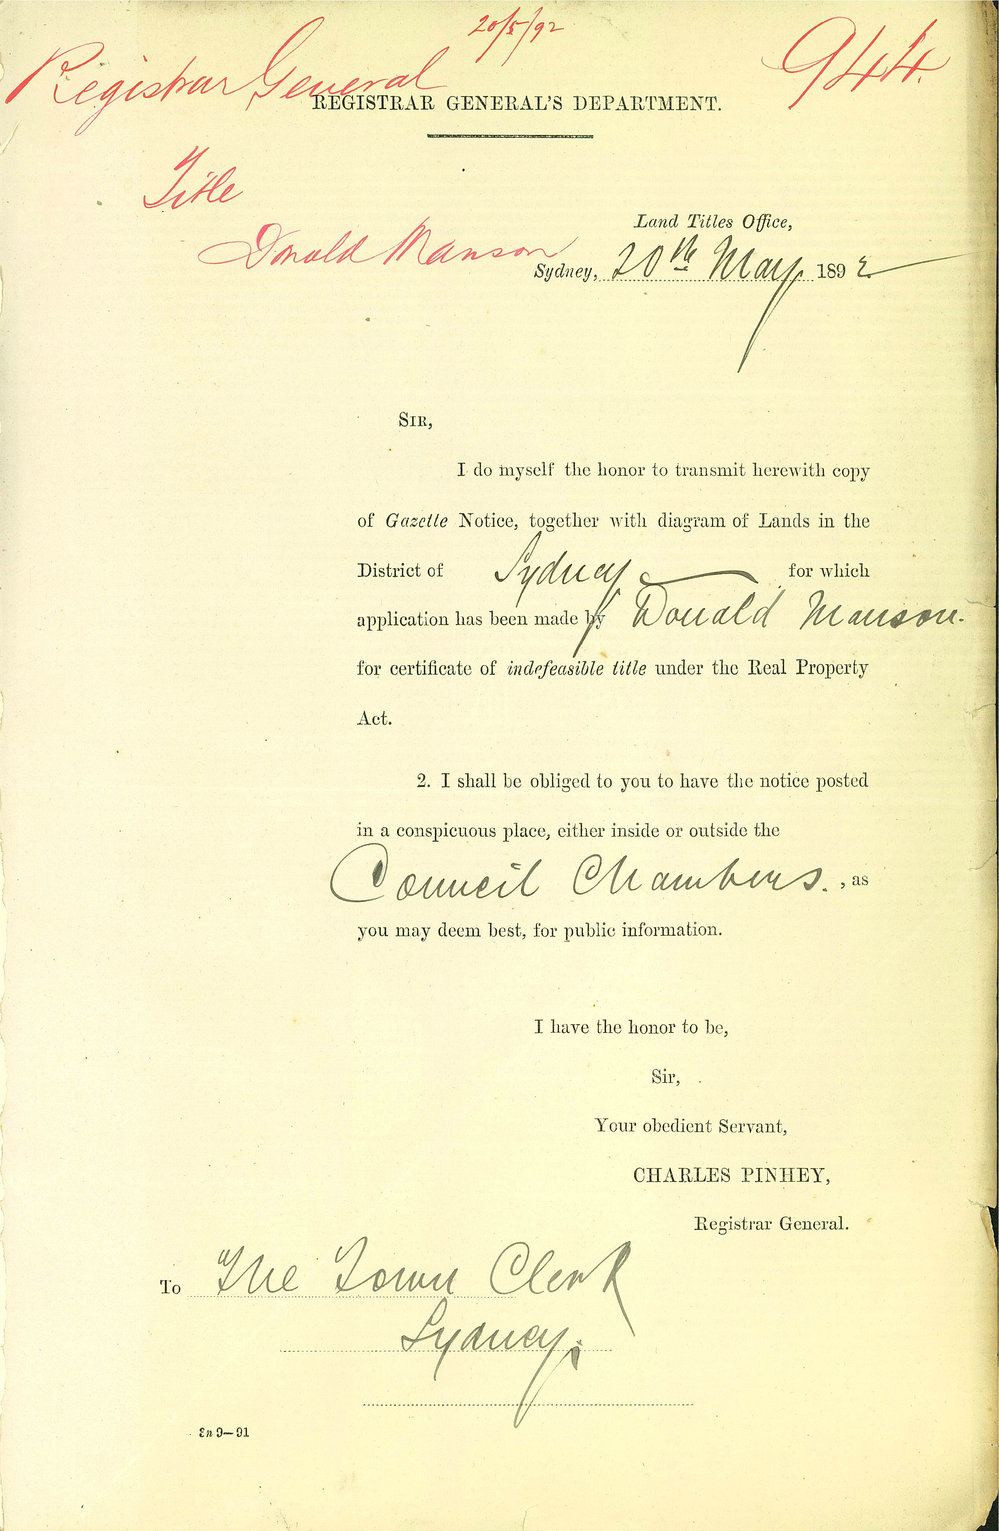 20/5/92
Registrar General
944.
REGISTRAR GENERAL'S DEPARTMENT.
Title
Donald Manson
Land Titles Office,
Sydney, 20th May 1892
SIR,
I do myself the honor to transmit herewith copy
of Gazette Notice, together with diagram of Lands in the
District of Sydney for which
application has been made by Donald Manson.
for certificate of indefeasible title under the Real Property
Act.
2. I shall be obliged to you to have the notice posted
in a conspicuous place, either inside or outside the
Council Chambers. , as
you may deem best, for public information.
I have the honor to be,
Sir,
Your obedient Servant,
CHARLES PINHEY,
Registrar General.
To The Town Clerk
Sydney.
9—91